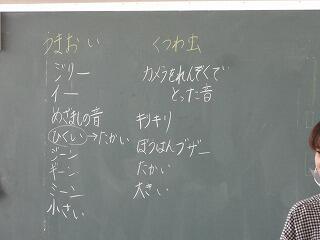 うまおい
ジリー
イー
めざましの音
ひくい→たかい
ジーン
ギーン
ミーン
小さい
くつわ虫
カメラをれんぞくで
とった音
キリキリ
ぼうはんブザー
たかい
大きい